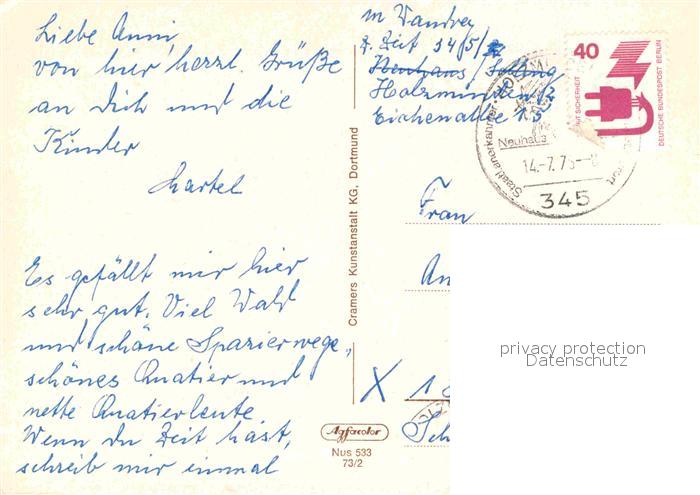 Liebe Anni,
von hier herzl. Grüße
an Dich und die
Kinder
Bartel
Es gefällt mir hier
sehr gut. Viel Wald
und schöne Spazierwege,
schönes Quatier und
nette Quatierleute
Wenn du Zeit hast,
schreib mir einmal
z. Zeit 34/5/
Neuhaus / Solling
Holzminden 2
Eichenallee 15
40
UNFALLVERHÜTUNG MIT SICHERHEIT
DEUTSCHE BUNDESPOST BERLIN
Staatl anerkannter
Neuhaus
14.-7.75-
345
Frau
An
X 1
Sch
Cramers Kunstanstalt KG, Dortmund
Agfacolor
Nus 533
73/2
privacy protection
Datenschutz